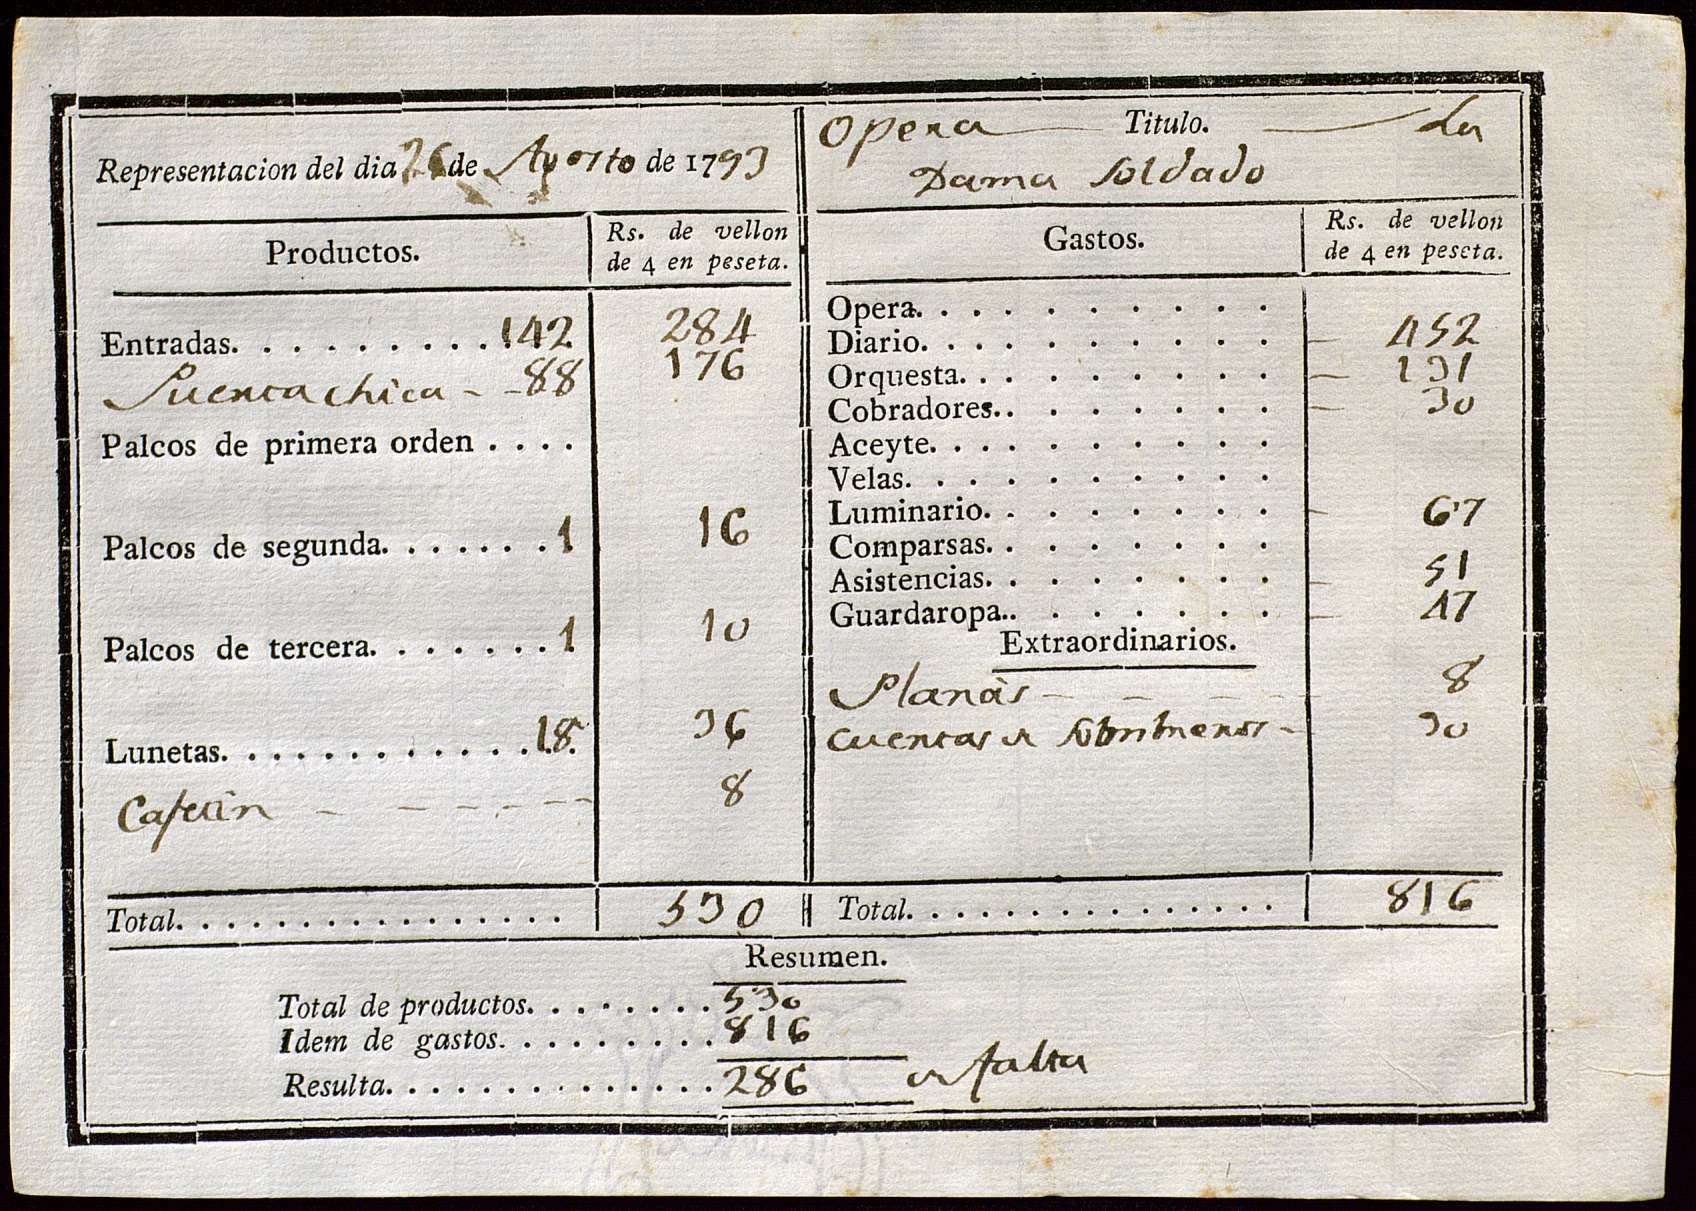 Representacion del dia 26 de Agosto de 1793
Opera Titulo. La
Dama Soldado
Productos.
Rs. de vellon
de 4 en peseta.
Gastos.
Rs. de vellon
de 4 en peseta.
Entradas. 142 284
Puerta chica 88 176
Palcos de primera orden
Palcos de segunda. 1 16
Palcos de tercera. 1 10
Lunetas. 18 36
Cafetin 8
Total. 530
Opera.
Diario. 452
Orquesta. 131
Cobradores. 30
Aceyte.
Velas.
Luminario. 67
Comparsas.
Asistencias. 51
Guardaropa. 47
Extraordinarios.
Planàs 8
Cuentas 30
Total. 816
Resumen.
Total de productos. 530
Idem de gastos. 816
Resulta. 286 falta